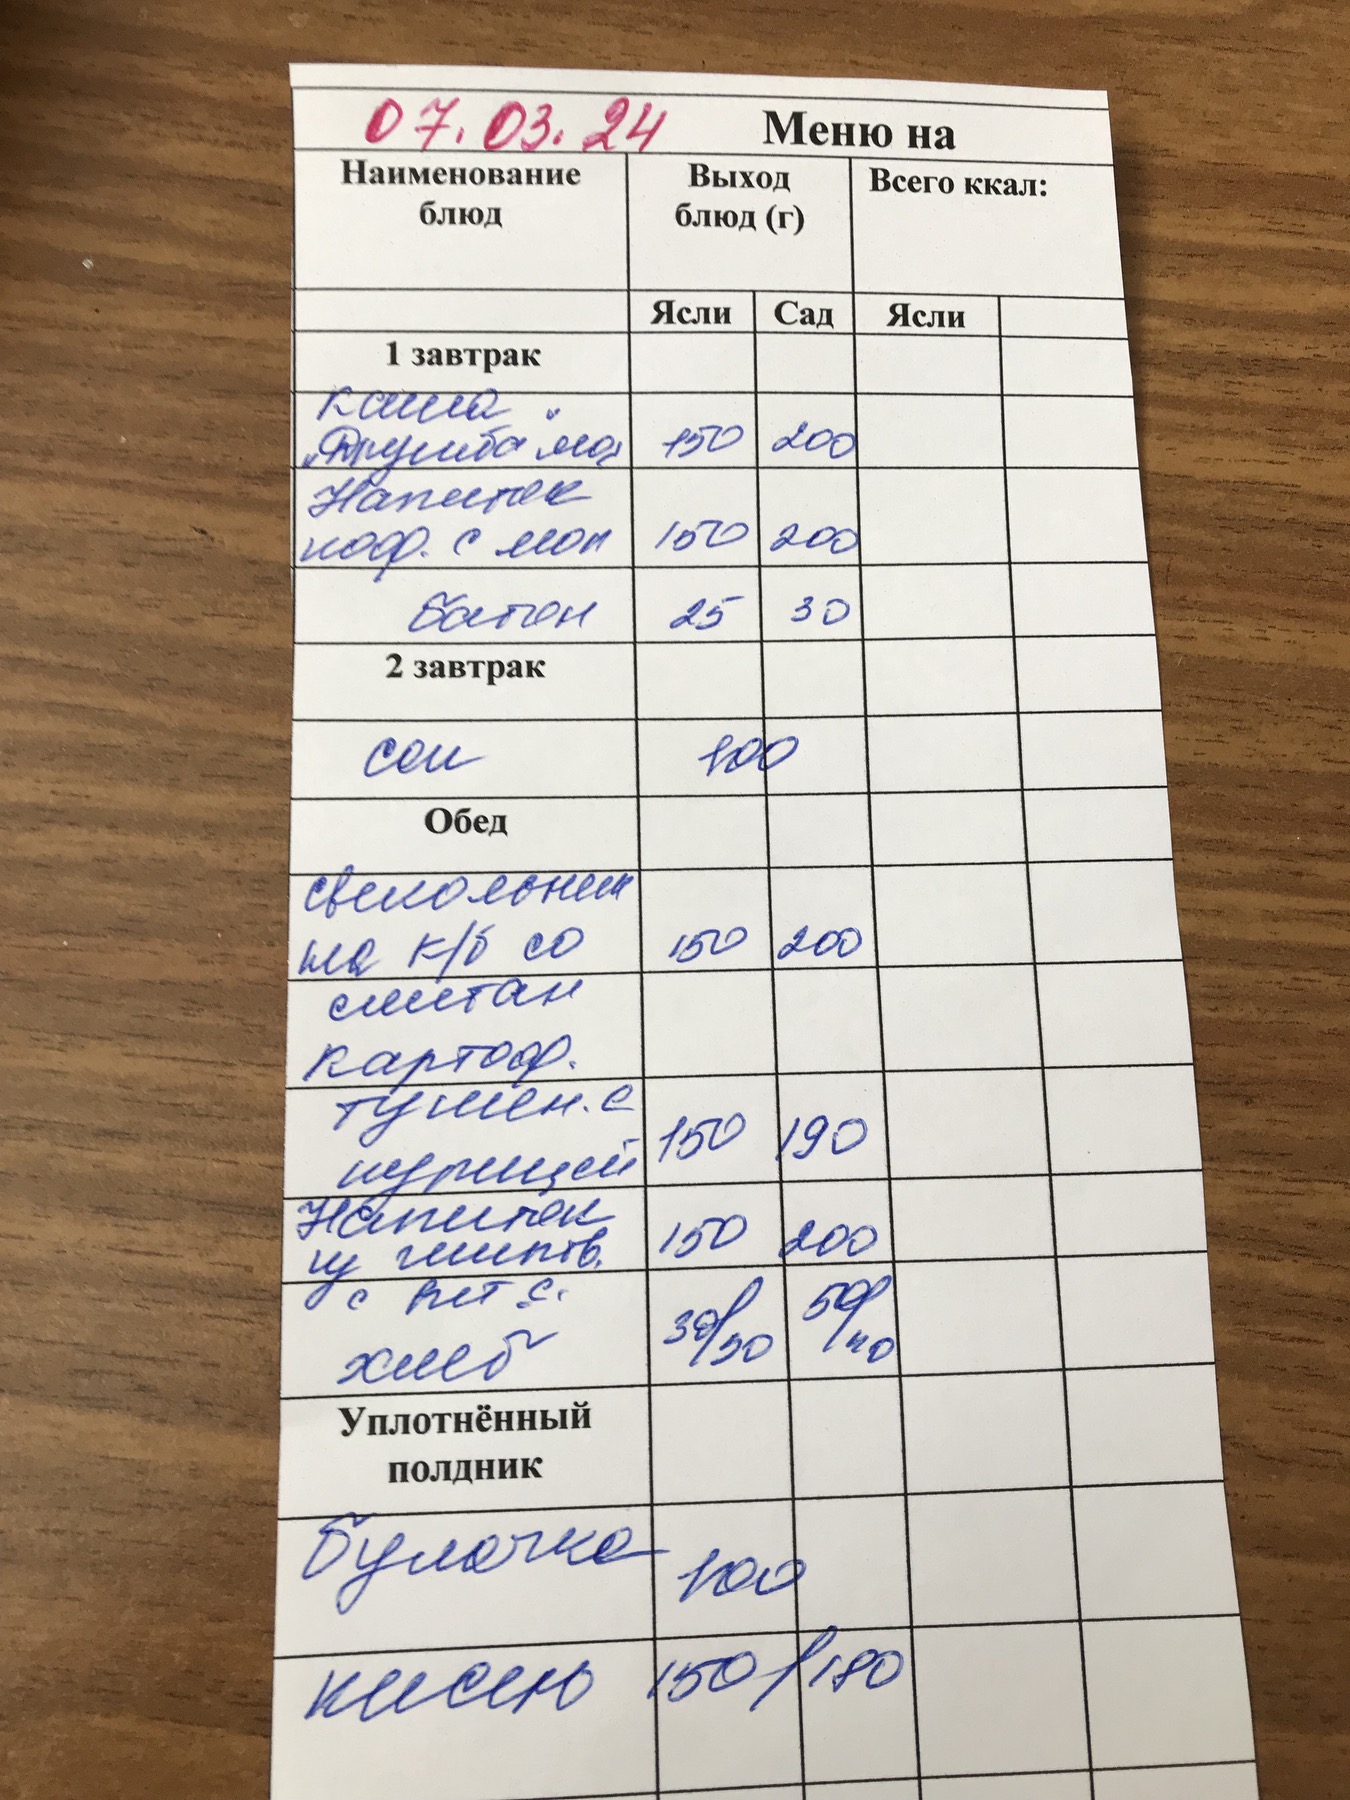 07.03.24 Меню на
Наименование блюд Выход блюд (г) Всего ккал:
Ясли Сад Ясли
1 завтрак
Каша
"Дружба" мол 150 200
Напиток
коф. с мол 150 200
батон 25 30
2 завтрак
сок 100
Обед
свекольник
на к/б со 150 200
сметан
картоф.
тушен. с
курицей 150 190
Напиток
из шипов. 150 200
с вит с.
хлеб 30/30 50/40
Уплотнённый
полдник
Булочка 100
кисель 150/180